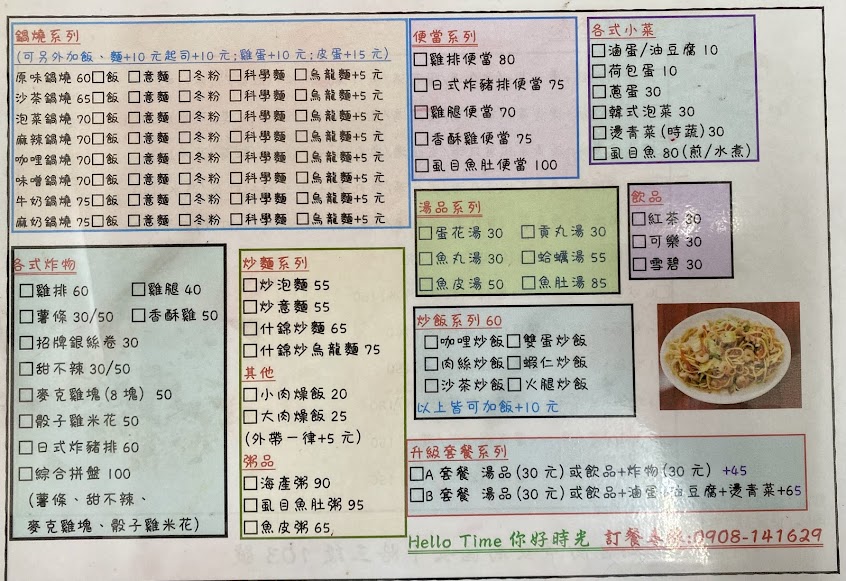 鍋燒系列
(可另外加飯、麵+10 元起司+10 元;雞蛋+10 元;皮蛋+15 元)
原味鍋燒 60□飯 □意麵 □冬粉 □科學麵 □烏龍麵+5 元
沙茶鍋燒 65□飯 □意麵 □冬粉 □科學麵 □烏龍麵+5 元
泡菜鍋燒 70□飯 □意麵 □冬粉 □科學麵 □烏龍麵+5 元
麻辣鍋燒 70□飯 □意麵 □冬粉 □科學麵 □烏龍麵+5 元
咖哩鍋燒 70□飯 □意麵 □冬粉 □科學麵 □烏龍麵+5 元
味噌鍋燒 70□飯 □意麵 □冬粉 □科學麵 □烏龍麵+5 元
牛奶鍋燒 75□飯 □意麵 □冬粉 □科學麵 □烏龍麵+5 元
麻奶鍋燒 75□飯 □意麵 □冬粉 □科學麵 □烏龍麵+5 元
便當系列
□雞排便當 80
□日式炸豬排便當 75
□雞腿便當 70
□香酥雞便當 75
□虱目魚肚便當 100
各式小菜
□滷蛋/油豆腐 10
□荷包蛋 10
□蔥蛋 30
□韓式泡菜 30
□燙青菜(時蔬)30
□虱目魚 80(煎/水煮)
湯品系列
□蛋花湯 30 □貢丸湯 30
□魚丸湯 30 □蛤蠣湯 55
□魚皮湯 50 □魚肚湯 85
飲品
□紅茶 30
□可樂 30
□雪碧 30
各式炸物
□雞排 60 □雞腿 40
□薯條 30/50 □香酥雞 50
□招牌銀絲卷 30
□甜不辣 30/50
□麥克雞塊(8 塊) 50
□骰子雞米花 50
□日式炸豬排 60
□綜合拼盤 100
(薯條、甜不辣、
麥克雞塊、骰子雞米花)
炒麵系列
□炒泡麵 55
□炒意麵 55
□什錦炒麵 65
□什錦炒烏龍麵 75
其他
□小肉燥飯 20
□大肉燥飯 25
(外帶一律+5 元)
粥品
□海產粥 90
□虱目魚肚粥 95
□魚皮粥 65
炒飯系列 60
□咖哩炒飯□雙蛋炒飯
□肉絲炒飯□蝦仁炒飯
□沙茶炒飯□火腿炒飯
以上皆可加飯+10 元
升級套餐系列
□A 套餐 湯品(30 元)或飲品+炸物(30 元) +45
□B 套餐 湯品(30 元)或飲品+滷蛋+油豆腐+燙青菜+65
Hello Time 你好時光 訂餐專線:0908-141629